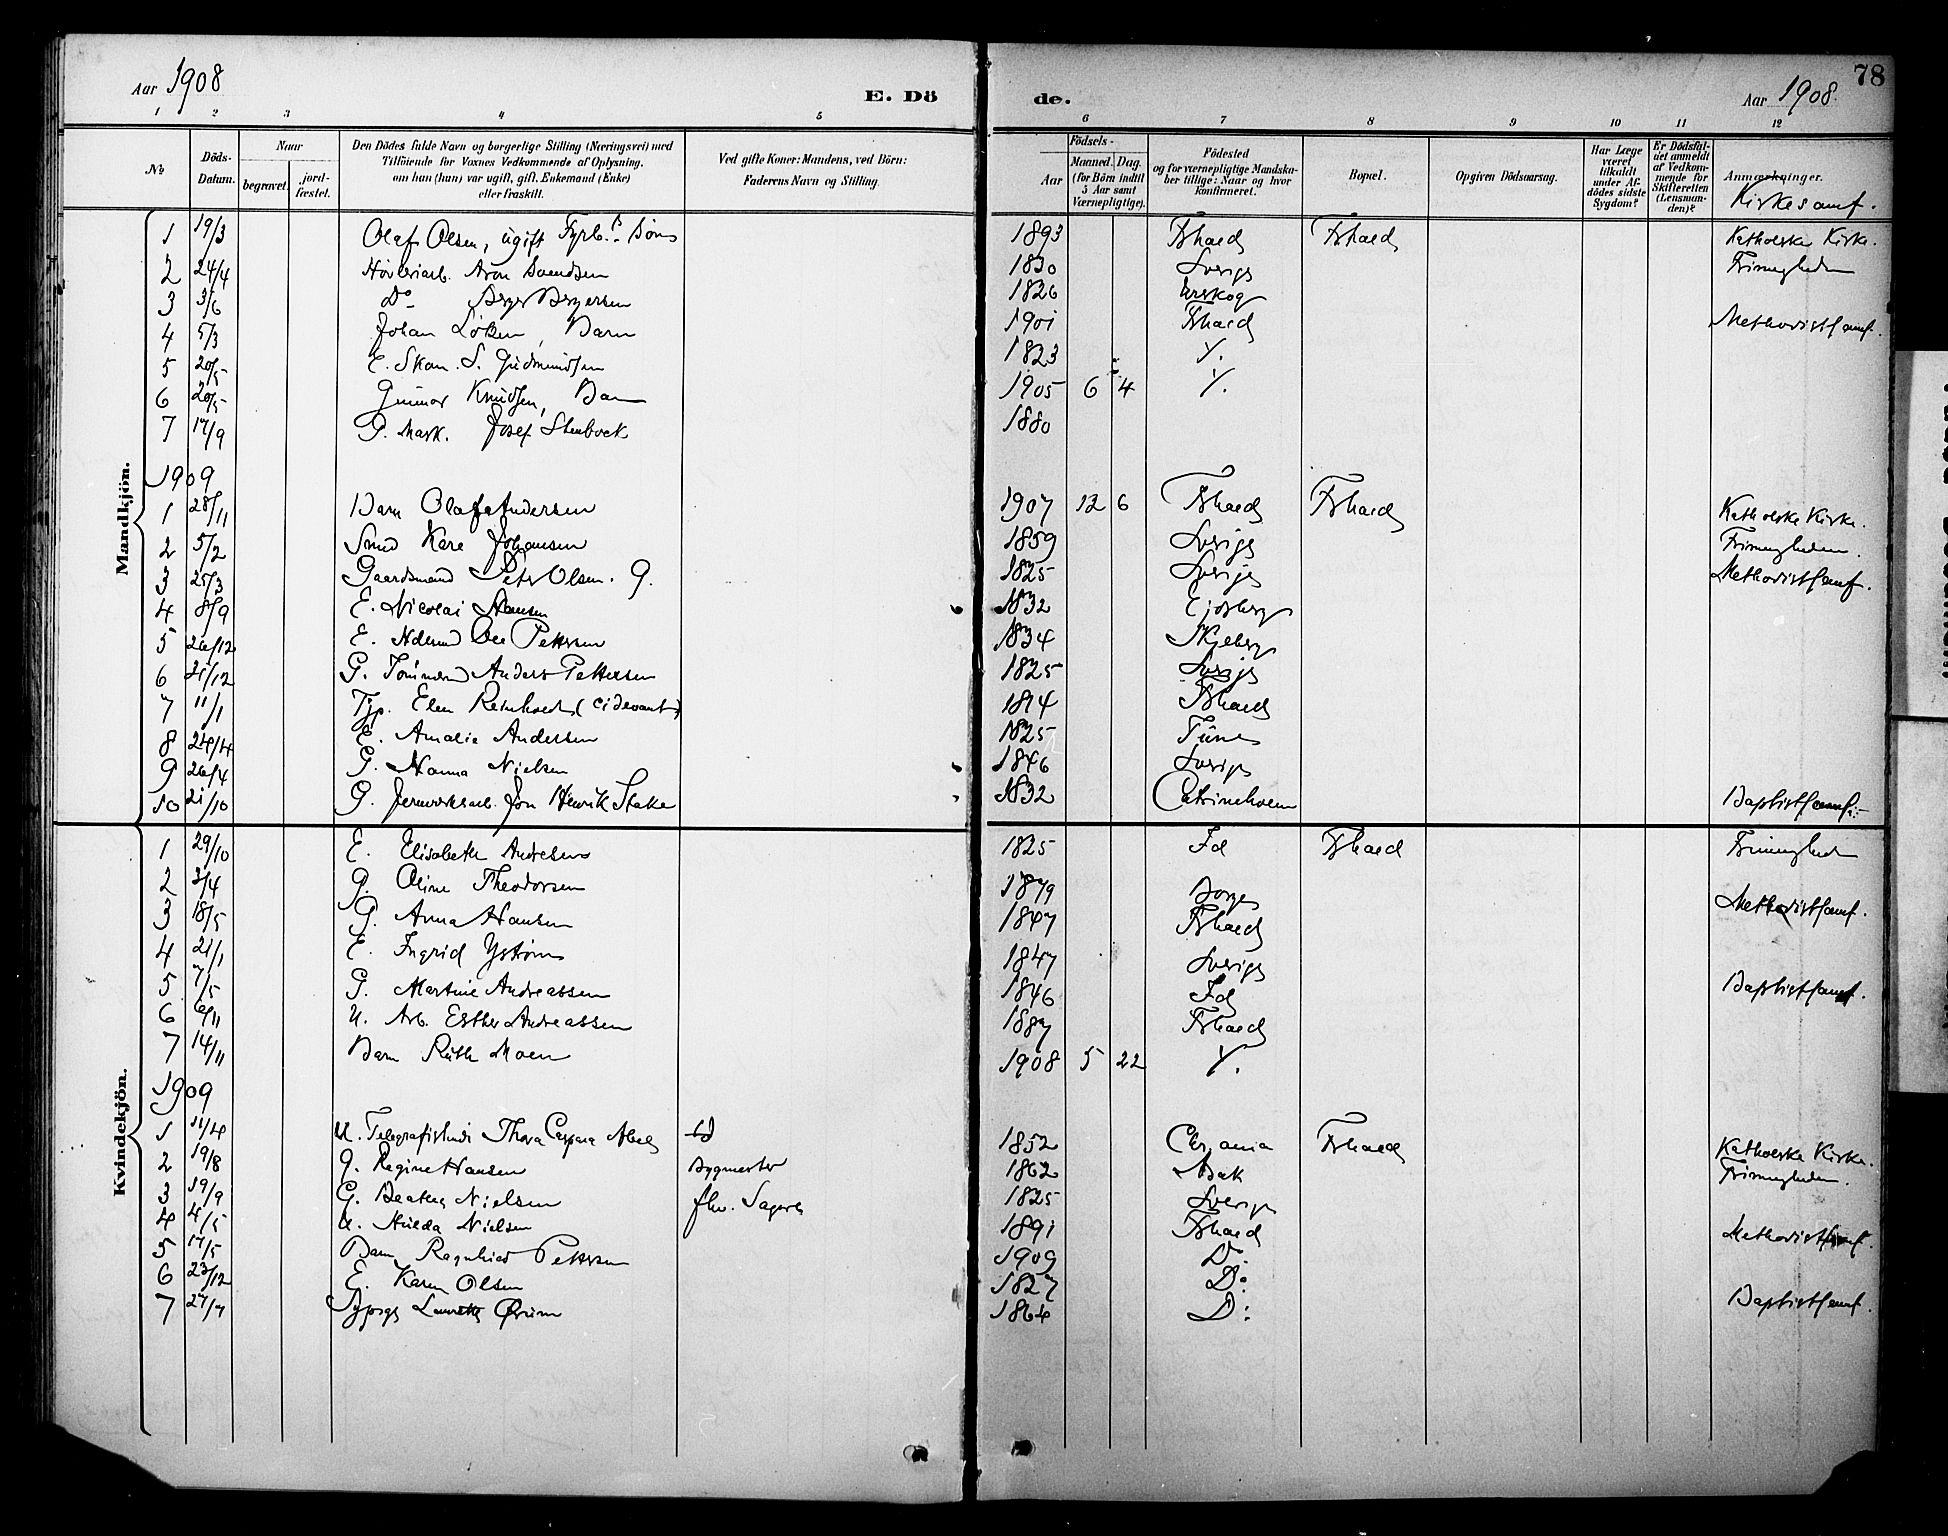 Aar 1908
E. Dö
de.
Aar 1908.
78
1 2 3 4 5 6 7 8 9 10 11 12
No
Döds-Datum.
Naar
begravet.
jord-fæstet.
Den Dödes fulde Navn og borgerlige Stilling (Næringsvei) med
Tilföiende for Voxnes Vedkommende af Oplysning,
om han (hun) var ugift, gift, Enkemand (Enke)
eller fraskilt.
Ved gifte Koner: Mandens, ved Börn:
Faderens Navn og Stilling.
Födsels-
Aar
Maaned. Dag.
(for Börn indtil
5 Aar samt
Værnepligtige).
Födested
og for værnepligtige Mandska-
ber tillige: Naar og hvor
konfirmeret.
Bopæl.
Opgiven Dödsaarsag.
Har Læge
været
tilkaldt
under Af-
dödes sidste
Sygdom?
Er Dödsfal-
det anmeldt
af Vedkom-
mende for
Skifteretten
(Lensman-
den)?
Anmærkninger.
Kirkesamf.
Mandkjön.
1 19/3 Olaf Olsen, ugift Fyrb. Søn 1893 Fshald Fshald Katholske Kirke.
2 24/4 Høvleriarb. Aron Svendsen 1830 Sverige Frimenigheden
3 3/6 Do Berger Bergersen 1826 Urskog
4 5/3 Johan Løken, Barn 1901 Fshald Methodistsamf.
5 20/5 E. Skom. S. Gudmundsen 1823
6 20/5 Gunnar Knudsen, Barn 1905 6 4
7 17/9 G. Mark. Josef Stenbock 1880
1909
1 28/11 Barn Olaf Andersen 1907 12 6 Fshald Fshald Katholske Kirke.
2 5/2 Smed Kare Johansen 1859 Sverige Frimenigheden.
3 25/3 Gaardsmand Peter Olsen. G. 1825 Sverige Methodistsamf.
4 8/9 E. Nicolai Hansen 1832
5 26/12 E. Ole Pettersen 1834 Skjeberg
6 21/12 G. Tömmerm Anders Pettersen 1825 Sverige
7 11/1 Typ. Elen Reinholdt (cidevant) 1814 Fshald
8 24/4 E. Amalie Andersen 1825 Tune
9 26/4 G. Hanna Nielsen 1846 Sverige
10 21/10 G. Jernverksarb. Jon Henrik Stake 1832 Catrineholm Baptistsamf.
Kvindekjön.
1 29/10 E. Elisabeth Andresen 1825 Id Fshald Frimenigheden
2 3/4 G. Oline Theodorsen 1879 Borge
3 18/5 G. Anna Hansen 1847 Fshald Methodistsamf.
4 21/1 E. Ingrid Yström 1847 Sverige
5 7/5 G. Martine Andreassen 1846 Id Baptistsamf.
6 6/11 U. Arb. Esther Andreassen 1887 Fshald
7 14/11 Barn Ruth Moen 1908 5 22
1909
1 11/4 U. Telegrafistinde Thora Caspara Abel 1852 Chrania Fshald Katholske Kirke.
2 19/8 G. Regine Hansen Bygmester 1862 Bak Frimenigheden.
3 19/9 G. Beathe Nielsen fhv. Sagarb 1825 Sverige
4 4/5 U. Hulda Nielsen 1891 Fshald Methodistsamf.
5 17/5 Barn Ragnhild Pettersen 1909 Do
6 23/12 E. Karen Olsen 1827 Do
7 27/7 Sypige Laurette Ørum 1864 Do Baptistsamf.